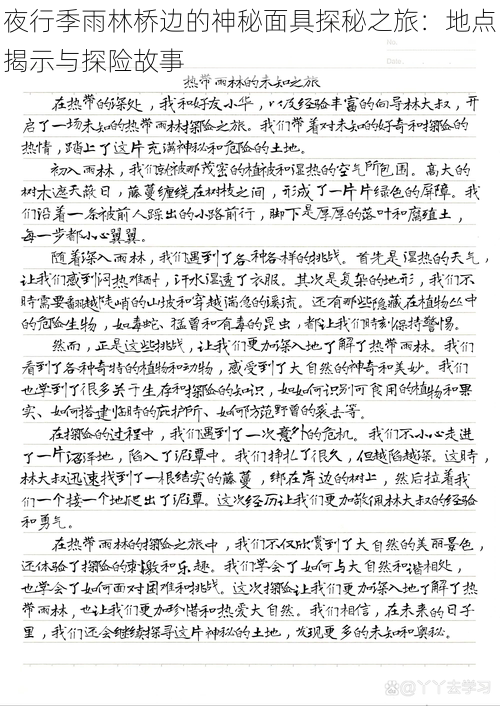 夜行季雨林桥边的神秘面具探秘之旅：地点
揭示与探险故事
No.
Date.
热带雨林的未知之旅
在热带的深处，我和好友小华，以及经验丰富的向导林大叔，开
启了一场未知的热带雨林探险之旅。我们带着对未知的好奇和探险的
热情，踏上了这片充满神秘和危险的土地。
初入雨林，我们就被那茂密的植被和湿热的空气所包围。高大的
树木遮天蔽日，藤蔓缠绕在树枝之间，形成了一片片绿色的屏障。我
们沿着一条被前人踩出的小路前行，脚下是厚厚的落叶和腐殖土，
每一步都小心翼翼。
随着深入雨林，我们遇到了各种各样的挑战。首先是湿热的天气，
让我们感到闷热难耐，汗水湿透了衣服。其次是复杂的地形，我们不
时需要翻越陡峭的山坡和穿越湍急的溪流。还有那些隐藏在植物丛中
的危险生物，如毒蛇、猛兽和有毒的昆虫，都让我们时刻保持警惕。
然而，正是这些挑战，让我们更加深入地了解了热带雨林。我们
看到了各种奇特的植物和动物，感受到了大自然的神奇和美妙。我们
也学到了很多关于生存和探险的知识，如如何识别可食用的植物和果
实、如何搭建临时的庇护所、如何防范野兽的袭击等。
在探险的过程中，我们遇到了一次意外的危机。我们不小心走进
了一片沼泽地，陷入了泥潭中。我们挣扎了很久，但越陷越深。这时，
林大叔迅速找到了一根结实的藤蔓，绑在岸边的树上，然后拉着我
们一个接一个地爬出了泥潭。这次经历让我们更加敬佩林大叔的经验
和勇气。
在热带雨林的探险之旅中，我们不仅欣赏到了大自然的美丽景色，
还体验了探险的刺激和乐趣。我们学会了如何与大自然和谐相处，
也学会了如何面对困难和挑战。这次探险让我们更加深入地了解了热
带雨林，也让我们更加珍惜和热爱大自然。我们相信，在未来的日子
里，我们还会继续探寻这片神秘的土地，发现更多的未知和奥秘。
@丫丫去学习